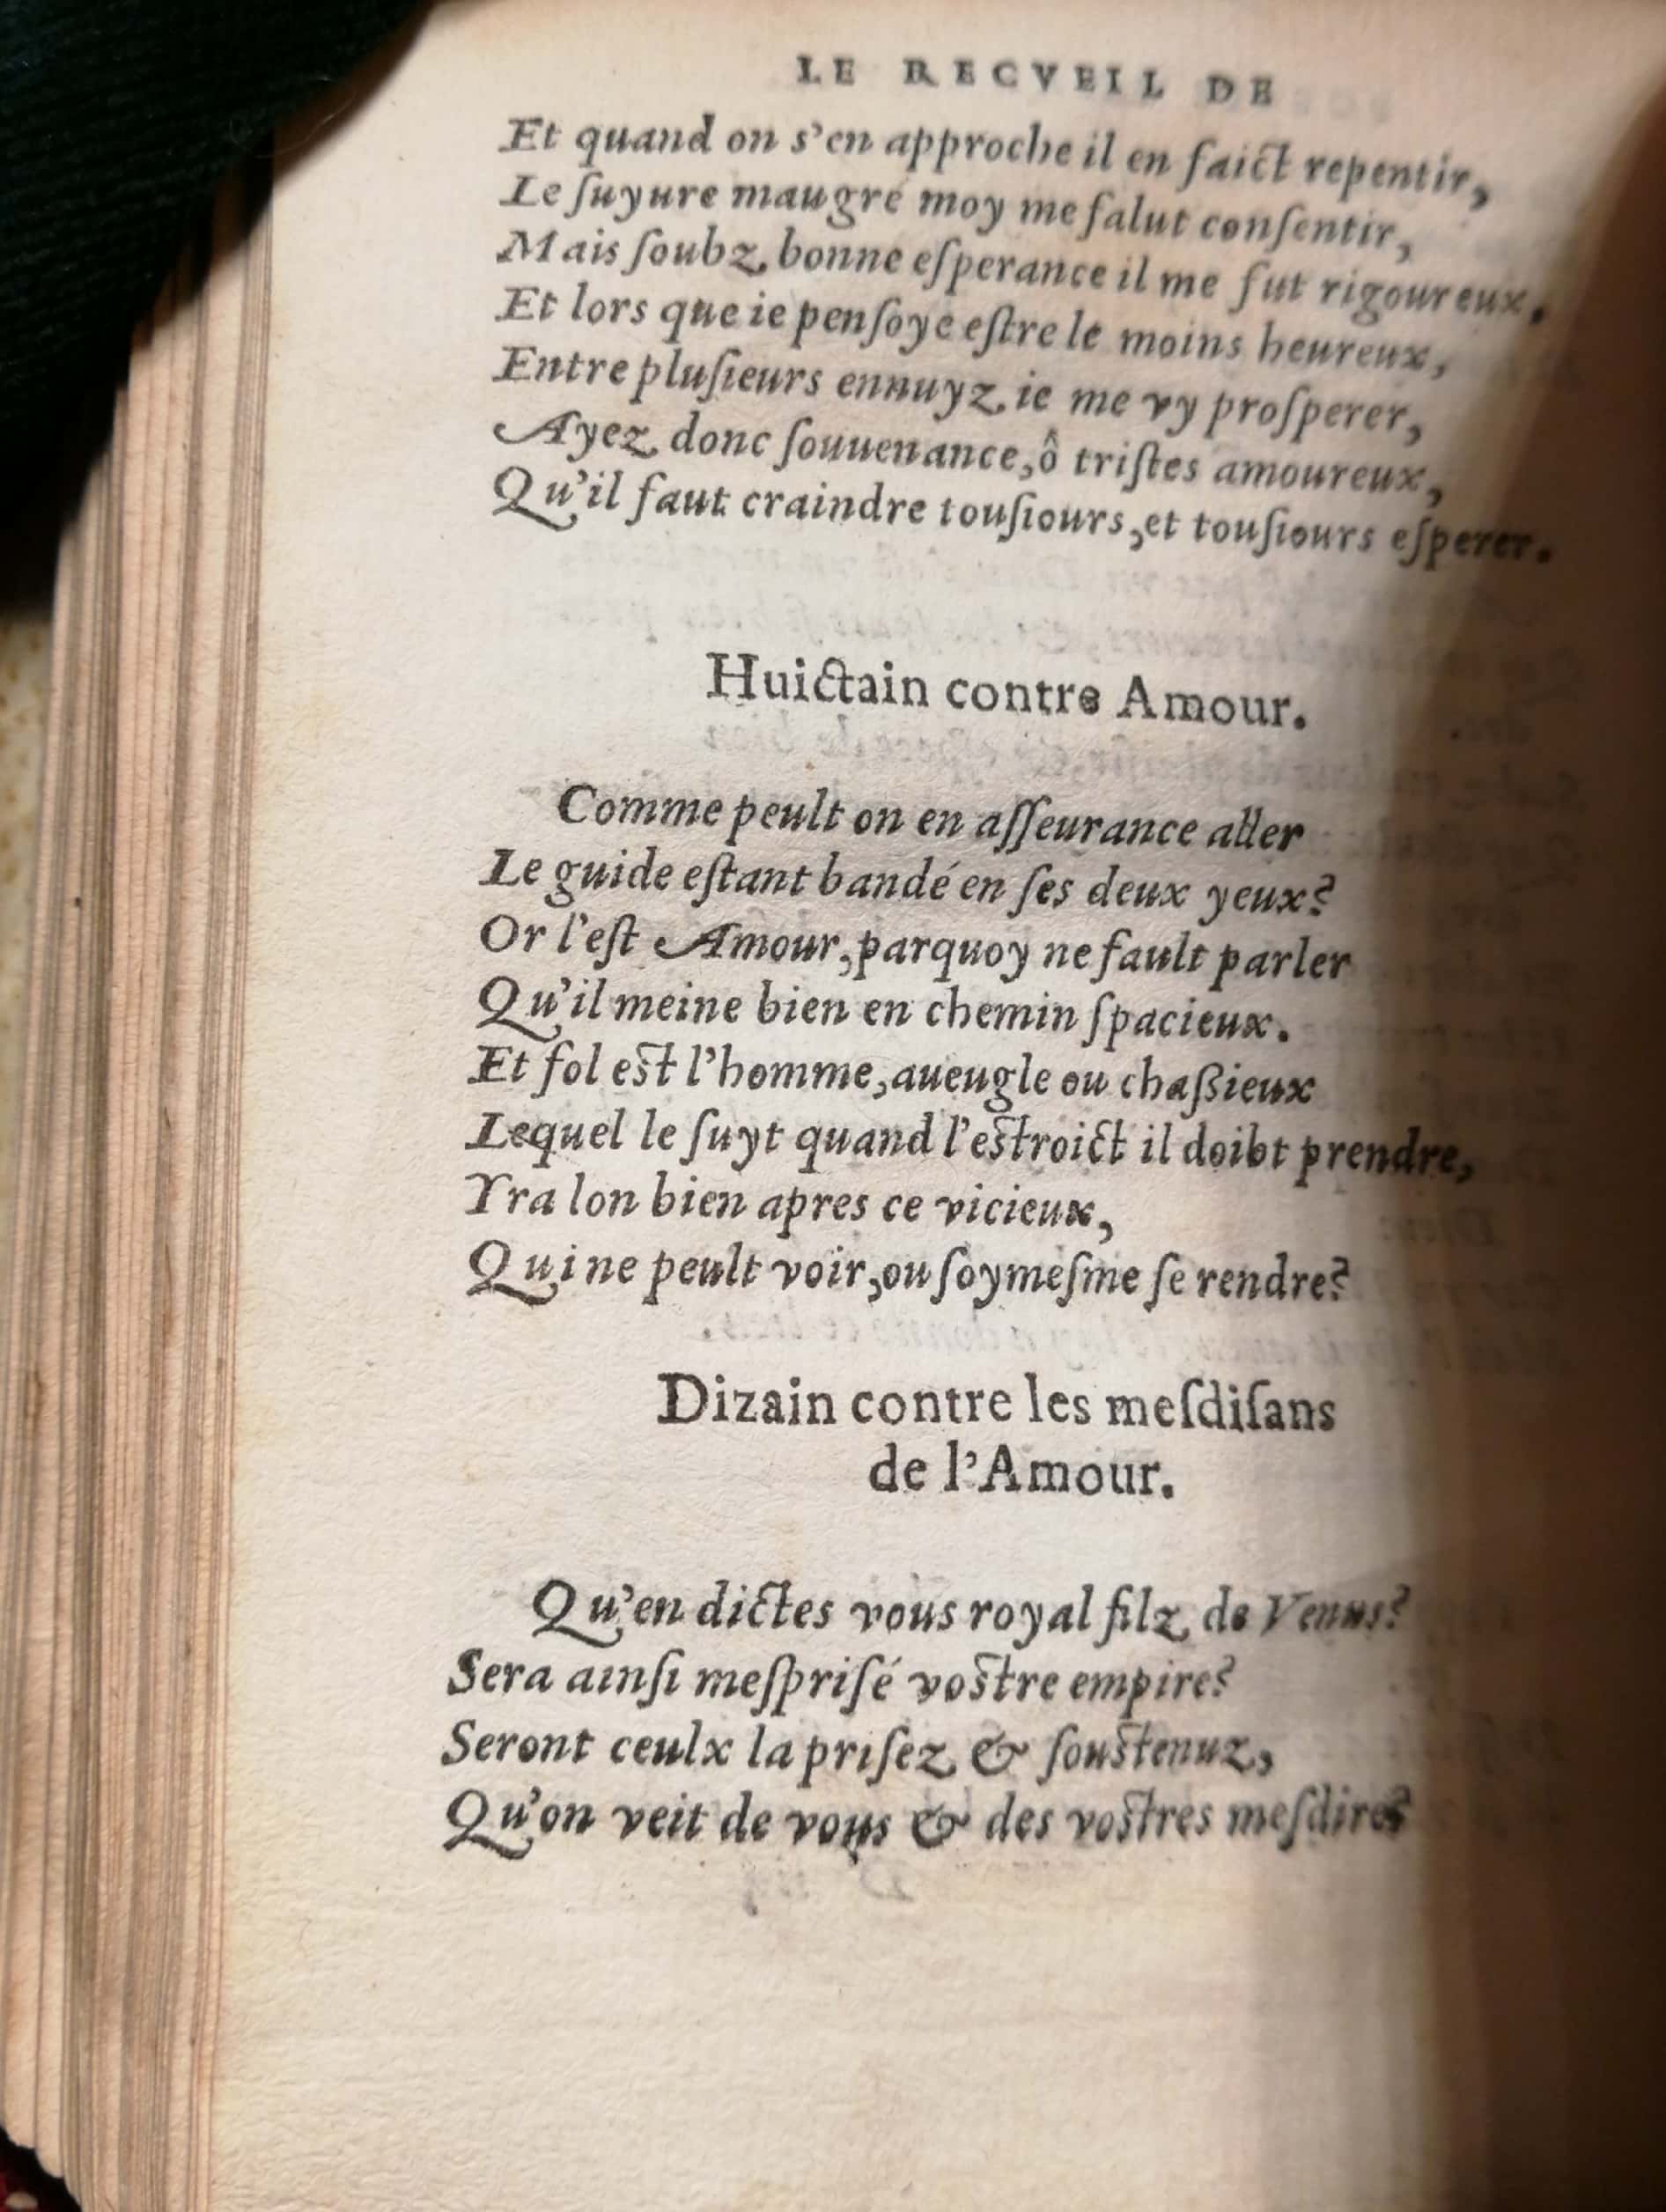 LE RECVEIL DE
Et quand on s'en approche il en faict repentir,
Le ſuyure maugré moy me falut conſentir,
Mais ſoubz bonne eſperance il me fut rigoureux.
Et lors que ie penſoye eſtre le moins heureux,
Entre pluſieurs ennuyz ie me vy proſperer,
Ayez donc ſouuenance, ô triſtes amoureux,
Qu'il faut craindre touſiours, et touſiours eſperer.
Huictain contre Amour.
Comme peult on en aſſeurance aller
Le guide eſtant bandé en ſes deux yeux?
Or l'eſt Amour, parquoy ne fault parler
Qu'il meine bien en chemin ſpacieux.
Et fol est l'homme, aueugle ou chaßieux
Lequel le ſuyt quand l'estroict il doibt prendre,
Yra lon bien apres ce vicieux,
Qui ne peult voir, ou ſoymeſme ſe rendre?
Dizain contre les meſdiſans
de l'Amour.
Qu'en dictes vous royal filz de Venus?
Sera ainſi meſpriſé vostre empire?
Seront ceulx la priſez & ſoustenuz,
Qu'on veit de vous & des vostres meſdire?